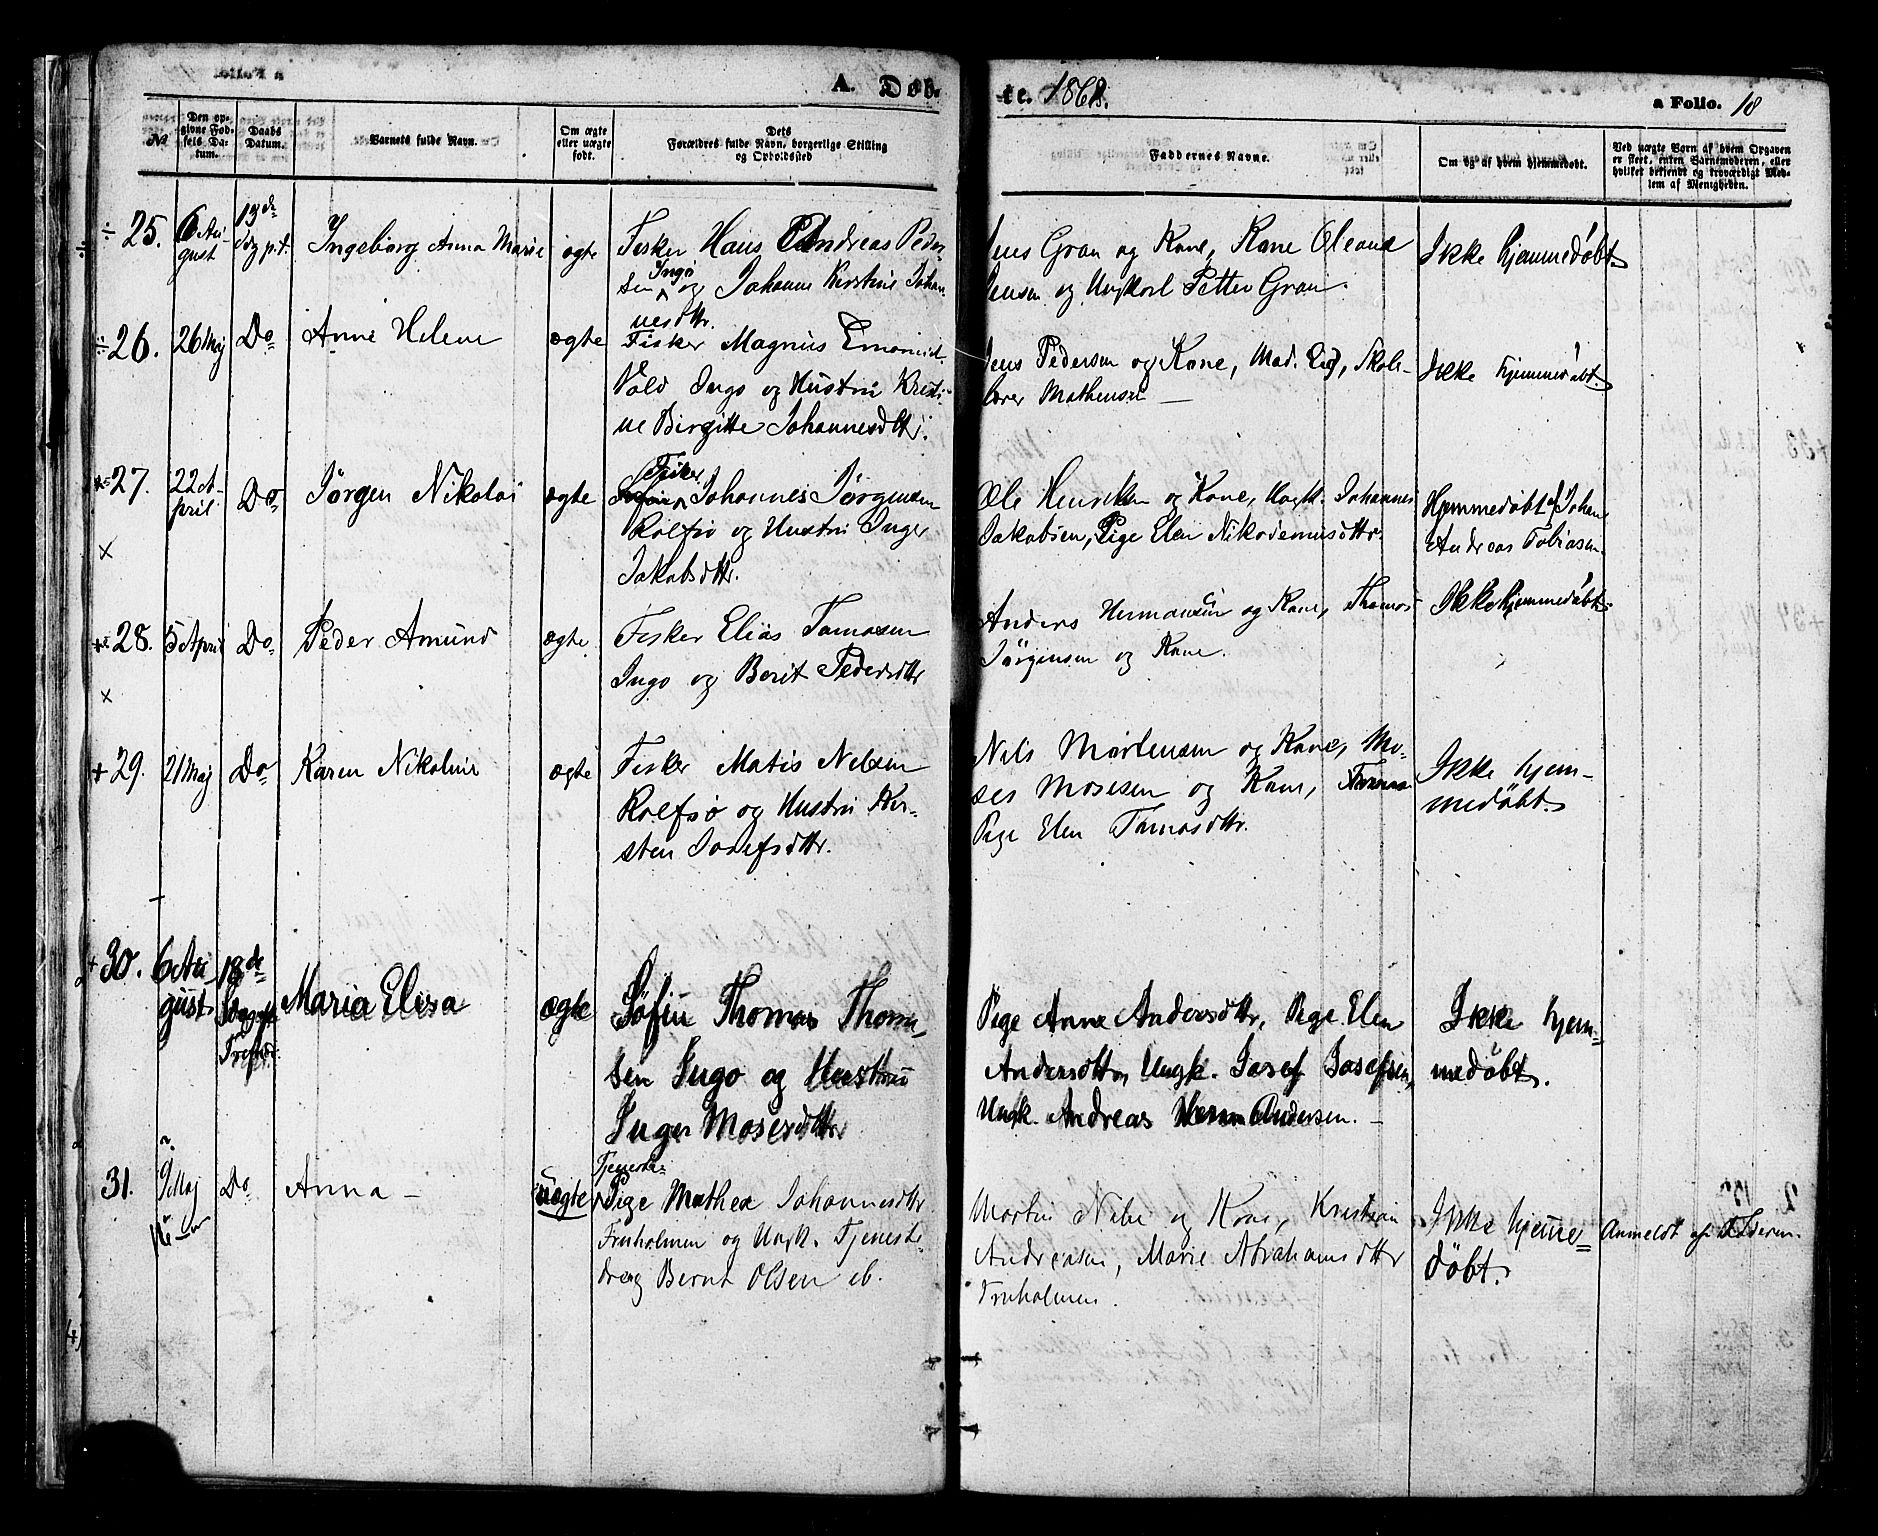 A. Døb-
te. 1868.
a Folio. 18
№
Den op-
givne Fød-
sels Da-
tum.
Daabs
Datum.
Barnets fulde Navn.
Om ægte
eller uægte
født.
Dets
Forældres fulde Navn, borgerlige Stilling
og Opholdssted
Faddernes Navne.
Om og af hvem hjemmedøbt.
Ved uægte Børn af hvem Opgaven
er skeet, enten Barnemoderen, eller
hvilket bekjendt og troværdigt Med-
lem af Menigheden.
÷ 25.
6 Au
gust
13de
Sdg p.t.
Ingeborg Anna Marie
ægte
Fisker Hans Andreas Peder
sen Ingø og Johanne Kirstine Johan
nesdttr.
Jens Gran og Kone, Kone Oleana
Jensen og Ungkarl Petter Gran.
Ikke hjemmedøbt.
÷ 26.
26 Maj
Do
Anne Helene
ægte
Fisker Magnus Emanuel
Vold Ingø og Hustru Kristi-
ne Birgitte Johannesdttr.
Jens Pedersen og Kone, Mad. Lid, Skole-
lærer Mathensen —
Ikke hjemmedøbt.
27.
22 A-
pril.
Do
Jørgen Nikolai
ægte
Fisker
Johannes Jørgensen
Rolfsø og Hustru Inger
Jakobsdttr.
Ole Henriksen og Kone, Ungk. Johannes
Jakobsen, Pige Elen Nikodemusdttr.
Hjemmedøbt af Johan
Andreas Tobiasen.
×
28.
5 April
Do
Peder Amund
ægte
Fisker Elias Tomasen
Ingø og Berit Pedersdttr
Anders Hermansen og Kone, Thomas
Jørgensen og Kone.
Ikke hjemmedøbt
×
+ 29.
21 Maj
Do
Karen Nikoline
ægte
Fisker Matis Nelsen
Rolfsø og Hustru Kir-
sten Josefsdttr.
Nils Mortensen og Kone, Mo-
ses Mosesen og Kone,
Pige Elen Tomasdttr.
Ikke hjem-
medøbt.
+ 30.
6 Au
gust
18de
Søndag e
Trefold.
Maria Elisa
ægte
Søfin Thomas Thom-
sen Ingø og Hustru
Inger Mosesdttr
Pige Anne Andersdttr, Pige Elen
Andersdttr, Ungk. Josef Josefsen,
Ungk. Andreas Andersen. —
Ikke hjem-
medøbt.
31.
9 Maj
Do
Anna —
uægte
Tjeneste-
Pige Mathea Johannesdttr
Fruholmen og Ungk. Tjeneste-
dreng Bernt Olsen ib.
Martin Nibe og Kone, Kristian
Andreasen, Marie Abrahamsdttr
Fruholmen.
Ikke hjemme-
døbt.
Anmeldt af